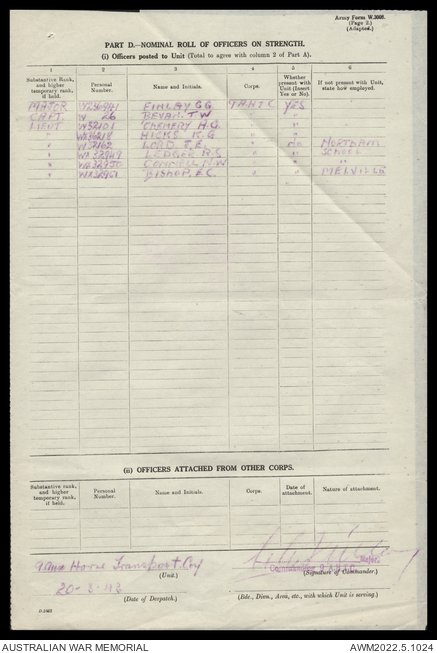 Army Form W.3008.
(Page 2.)
(Adapted.)
PART D.—NOMINAL ROLL OF OFFICERS ON STRENGTH.
(i) Officers posted to Unit (Total to agree with column 2 of Part A).
1 2 3 4 5 6
Substantive Rank, and higher temporary rank, if held. Personal Number. Name and Initials. Corps. Whether present with Unit (Insert Yes or No). If not present with Unit, state how employed.
MAJOR FINLAY G.G. YES
CAPT. W 26 BEVAN. T W "
LIEUT W52101 H.G. "
" HICKS K.G "
" LORD T.E. " NO
" LEDGER R.S " " SCHOOL
" CONNELL N.W " " "
" BISHOP. E.C. " " MELVILLE
(ii) OFFICERS ATTACHED FROM OTHER CORPS.
Substantive rank, and higher temporary rank, if held. Personal Number. Name and Initials. Corps. Date of attachment. Nature of attachment.
Horse Transport Coy
(Unit.)
Major
(Signature of Commander.)
(Date of Despatch.)
(Bde., Divn., Area, etc., with which Unit is serving.)
AUSTRALIAN WAR MEMORIAL AWM2022.5.1024